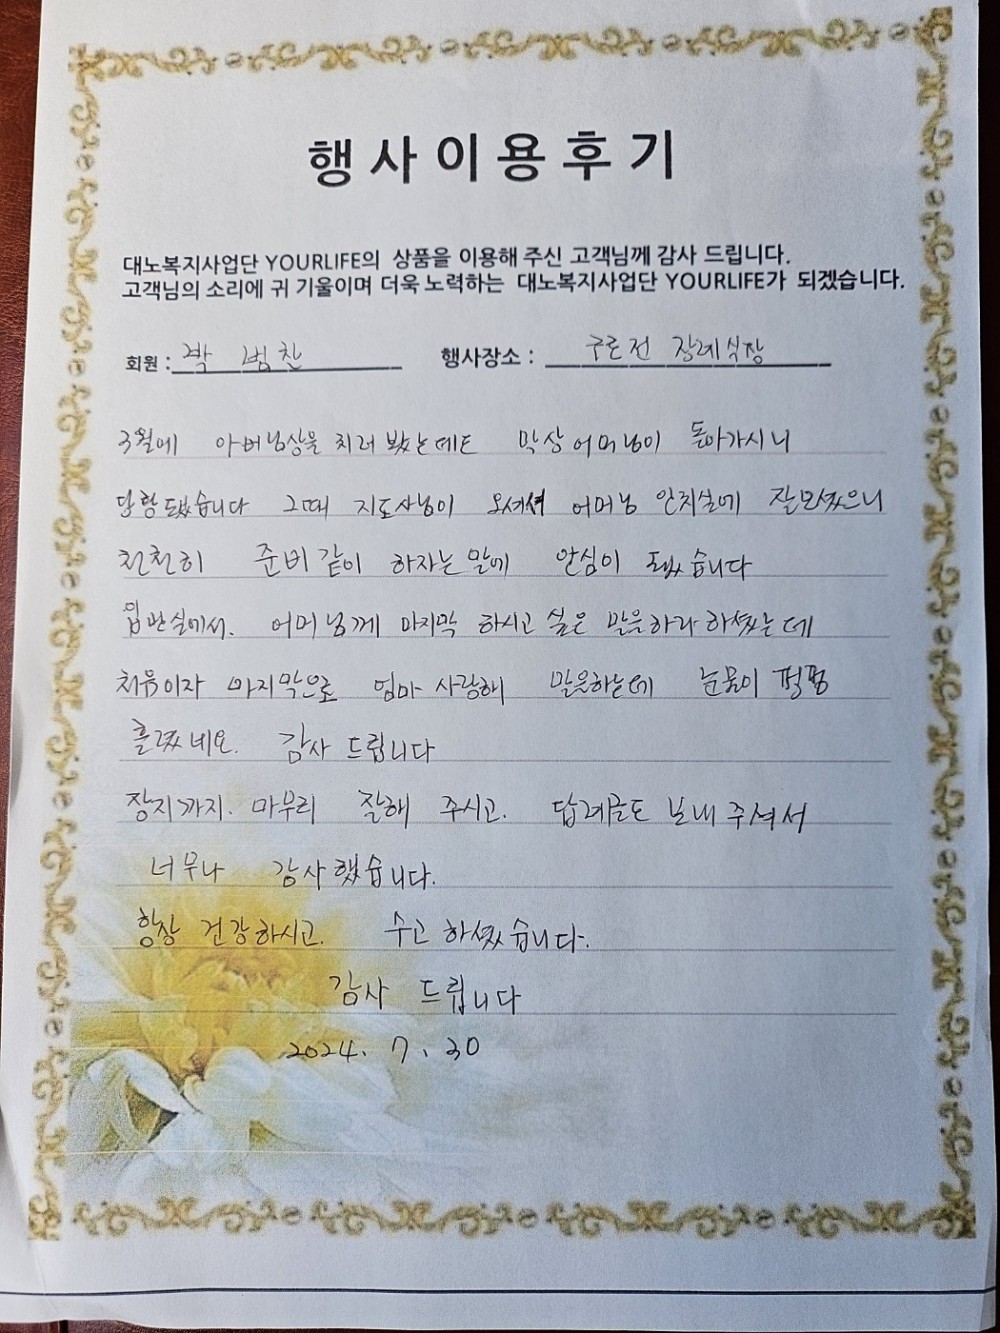 행사이용후기
대노복지사업단 YOURLIFE의 상품을 이용해 주신 고객님께 감사 드립니다.
고객님의 소리에 귀 기울이며 더욱 노력하는 대노복지사업단 YOURLIFE가 되겠습니다.
회원 : 박 범찬 행사장소 : 장례식장
3월에 아버님상을 치러 봤는데도 막상 어머님이 돌아가시니
당황됐습니다 그때 지도사님이 오셔서 어머님 안치실에 잘모셨으니
천천히 준비 같이 하자는 말에 안심이 됐습니다
입관실에서. 어머님께 마지막 하시고 싶은 말을하라 하셨는데
처음이자 마지막으로 엄마 사랑해 말을하는데 눈물이 펑펑
흘렀네요. 감사 드립니다
장지까지. 마무리 잘해 주시고. 답례글도 보내 주셔서
너무나 감사했습니다.
항상 건강하시고. 수고 하셨습니다.
감사 드립니다
2024. 7. 30